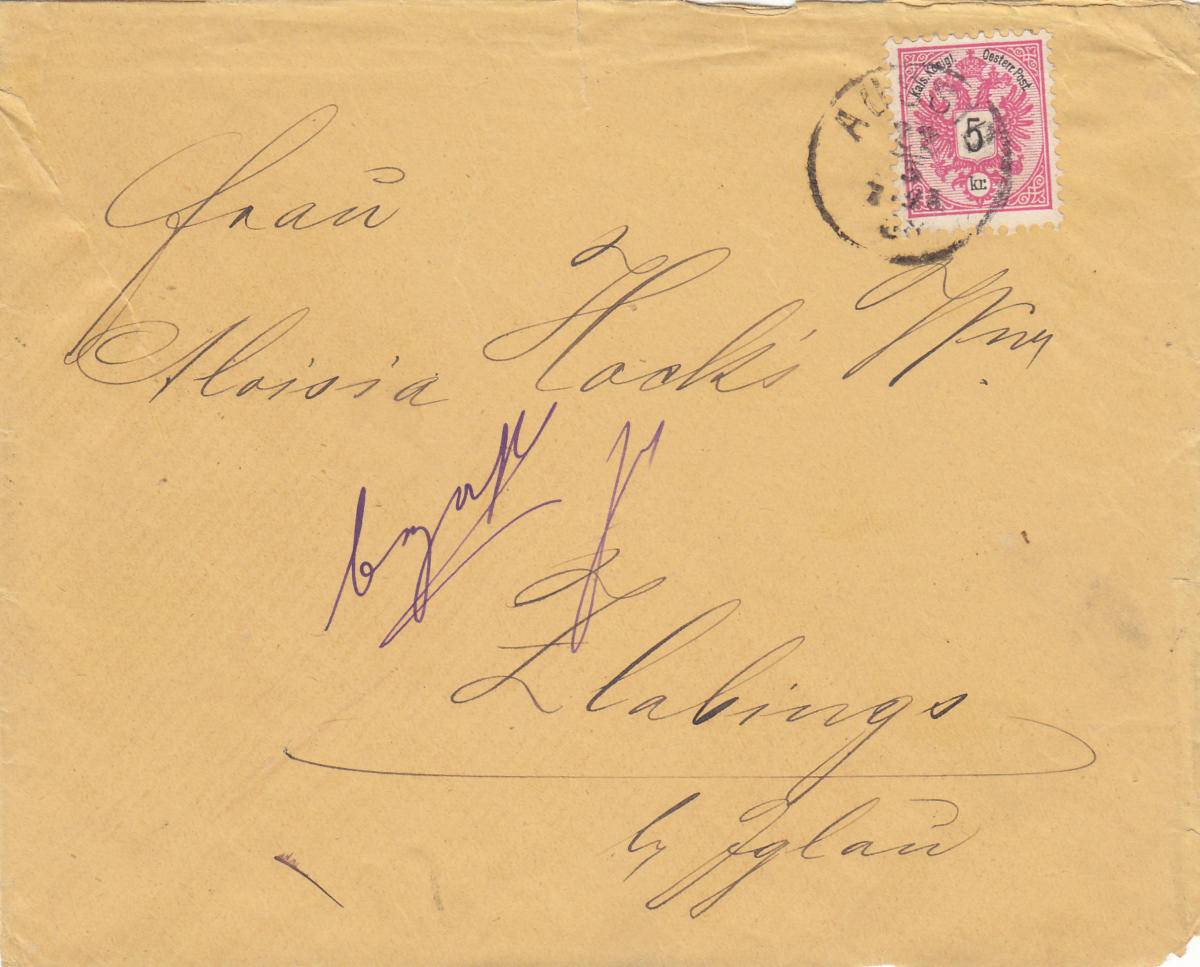 Kais. Königl. Oesterr. Post.
5
kr.
Frau
Aloisia Hock's Wwe
Zlabings
by Iglau